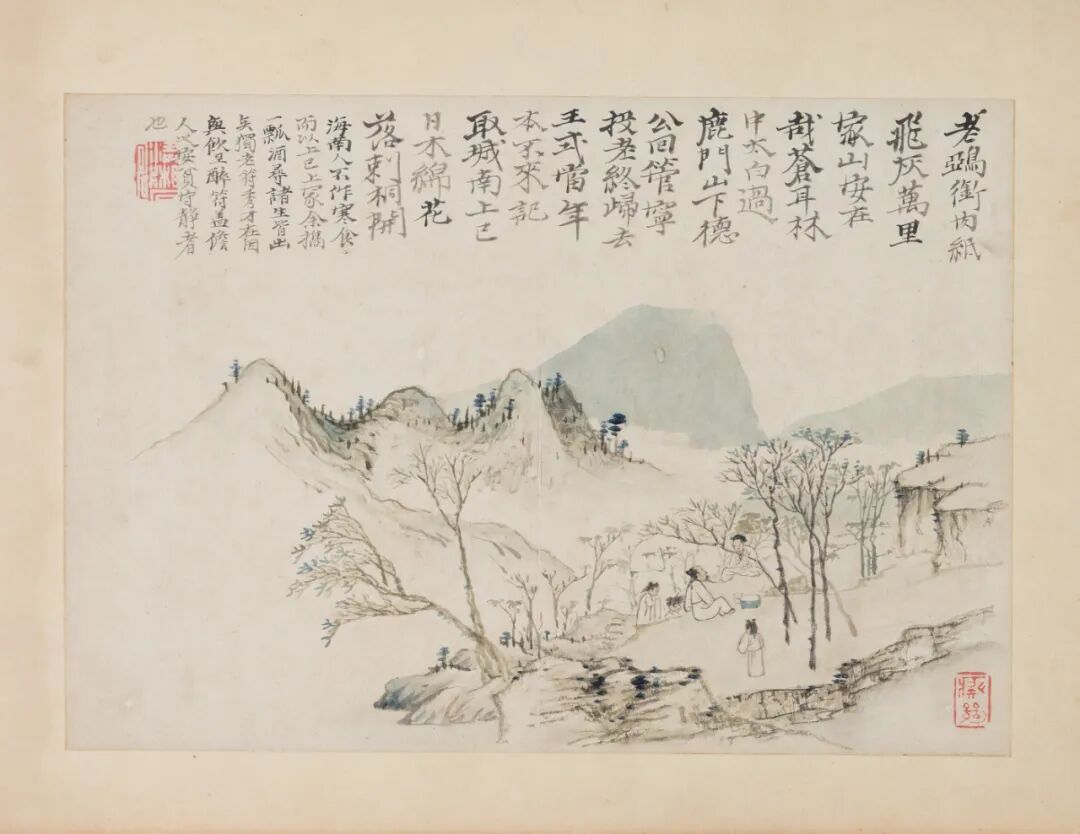 老鵶銜肉紙
飛灰萬里
家山安在
哉蒼耳林
中太白過
鹿門山下德
公回管寧
投老終歸去
王式當年
本不來記
取城南上巳
日木綿花
落刺桐開
海南人不作寒食
而以上巳上冢余攜
一瓢酒尋諸生皆出
矣獨老符秀才在因
與飲至醉符蓋儋
人之安貧守靜者
也